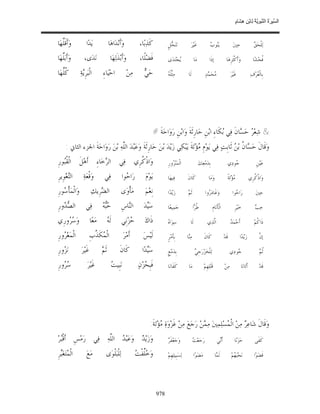 السيرة النبوية لابن هشام
للحق حين ينوب غير تنحل كذبا، وأنداها يدا، وأقلها
فحشا، وأكثرها إذا ما يجتدى فضلا، وأبذلها ندى، وأبلها
بالعرف غير محمد لا مثله حي من أحياء البرية كلها
شعر حسان في بكاء ابن حارثة وابن رواحة
وقال حسان بن ثابت في يوم مؤتة يبكي زيد بن حارثة وعبد الله بن رواحة الجزء الثاني
عين جودي بدمعك المنزور واذكري في الرخاء أهل القبور
واذكري مؤتة وما كان فيها يوم راحوا في وقعة التغوير
حين راحوا وغادروا ثم زيدا نعم مأوى الضريك والمأسور
حب خير الأنام طرا جميعا سيد الناس حبه في الصدور
ذاكم أحمد الذي لا سواه ذاك حزني له معا وسروري
إن زيدا قد كان منا بأمر ليس أمر المكذب المغرور
ثم جودي للخزرجي بدمع سيدا كان ثم غير نزور
قد أتانا من قتلهم ما كفانا فبحزن نبيت غير سرور
وقال شاعر من المسلمين ممن رجع من غزوة مؤتة
كفى حزنا أني رجعت وجعفر وزيد وعبد الله في رمس أقبر
قضوا نحبهم لما مضوا لسبيلهم وخلفت للبلوى مع المتغبر
978